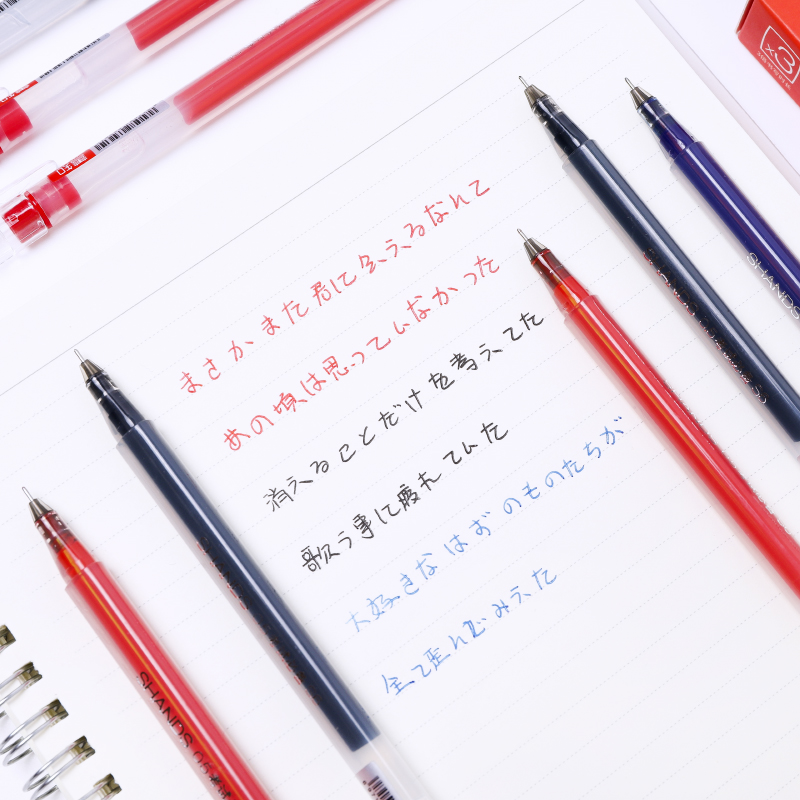 まさか また 君に会えるなんて
あの頃は思っていなかった
消えることだけを考えてた
歌う事に疲れていた
大好きなはずのものたちが
全て歪んでみえた
SHANDS
SHANDS
x3